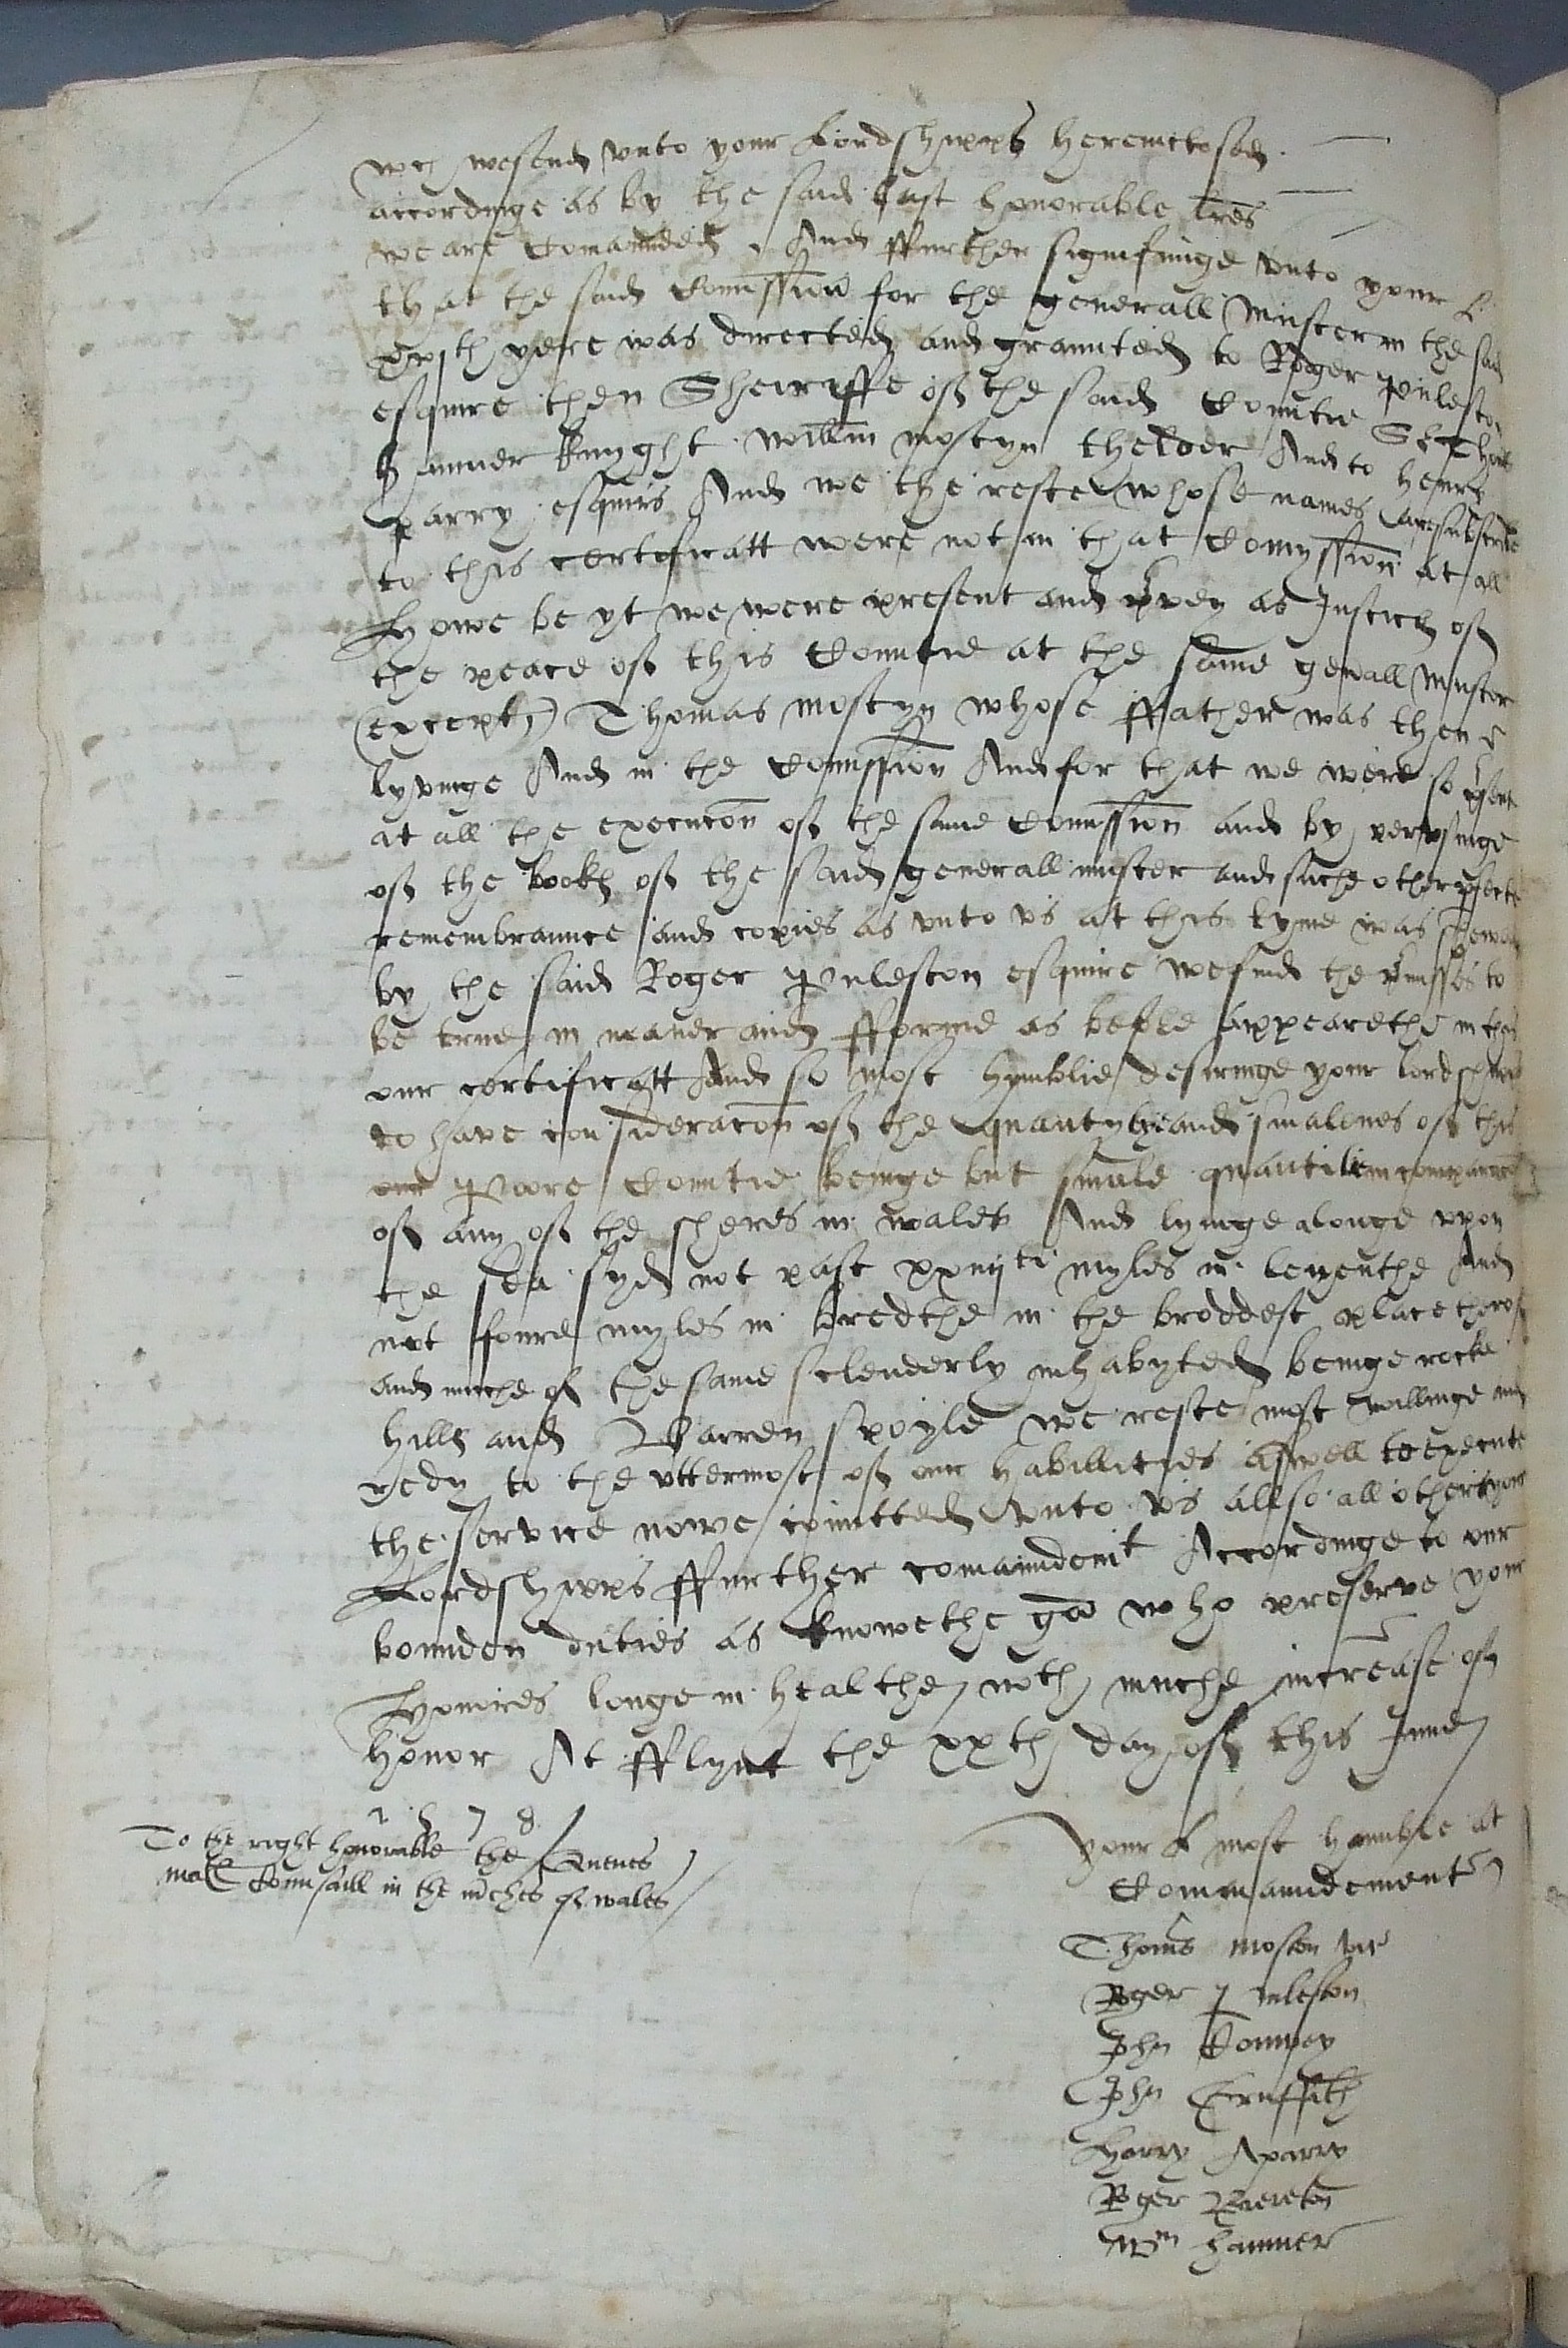 wch we sende vnto your Lordshipps hereinclosed
accordinge as by the said last honorable lres
we are Comaunded, And ffurther signifiinge vnto your L
that the said Comission for the generall Muster in the said
yere was directed and graunted to Roger Pulesto
esquire then Sheriffe of the said Countie Sr Thoms
hanmer knyght willm mostyn thelder And to henry
parry esquirs And we the reste whose names are subscribe
to this certificatt were not in that Comyssion at all
Howe be yt we were present and prvey as Justices of
the peace of this Countie at the same gerall Muster
(except) Thomas mostyn whose ffather was then
lyvinge And in the Comission And for that we were so psent
at all the execucon of the same Comission and by pervsinge
of the bookes of the said generall muster and suche other pfecte
remembraunce and copies as vnto vs at this tyme was shewed
by the said Roger Puleston esquire we finde the pmisses to
be true in maner and fforme as before appearethe in this
our certificatt And so most humblie desiringe your lordshipps
to have consideracon of the quantytie and smalenes of this
our Poore Countie beinge but smale quantitie in comparison
of any of the sheres in wales And lyinge alonge vpon
the sea syde not past xxiiijti myles in lengthe And
not foure myles in bredthe in the broddest place therof
and muche of the same sclenderly inhabyted beinge rocke
hills and Barren soyle we reste most willinge and
redy to the vttermost of our habillities aswell to execute
the service nowe comitted vnto vs allso all other your
Lordshipps ffurther comaundemt Accordinge to our
bounden duties as knowethe god who preserve your
Honoures longe in healthe with muche increase of
honor At fflynt the xxth day of this June
1578
To the right honorable the Quenes
mats Counsaill in the mches of wales
your L most humble at
Commaundement
Thoms mosten vic
Roger Puleston
John Conwey
John Gruffith
Harry Aparry
Roger Brereton
Wm hanmer